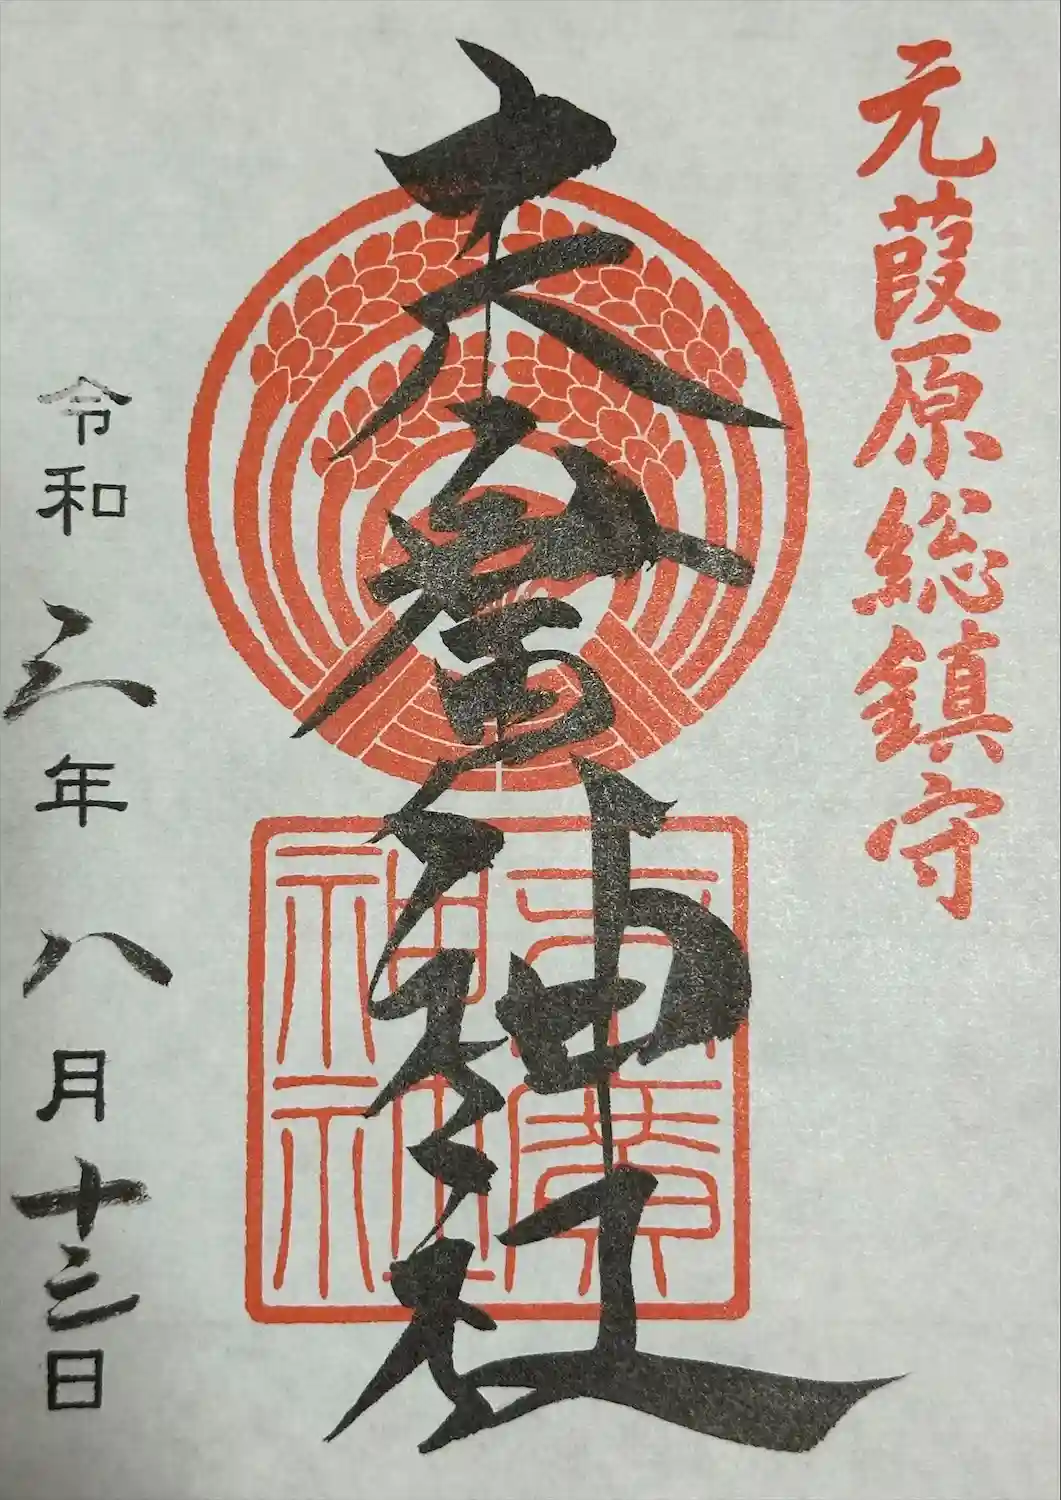 元葭原総鎮守
末廣神社
末廣
神社
令和三年八月十三日